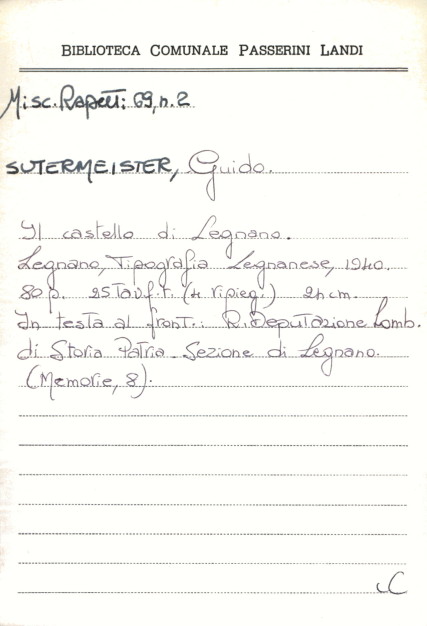 BIBLIOTECA COMUNALE PASSERINI LANDI
Misc. Rapetti 69, n. 2
SUTERMEISTER, Guido.
Il castello di Legnano.
Legnano, Tipografia Legnanese, 1940.
80 p. 25 tav. f.t. (4 ripieg.) 24 cm.
In testa al front.: R. Deputazione Lomb.
di Storia Patria. Sezione di Legnano.
(Memorie, 8).